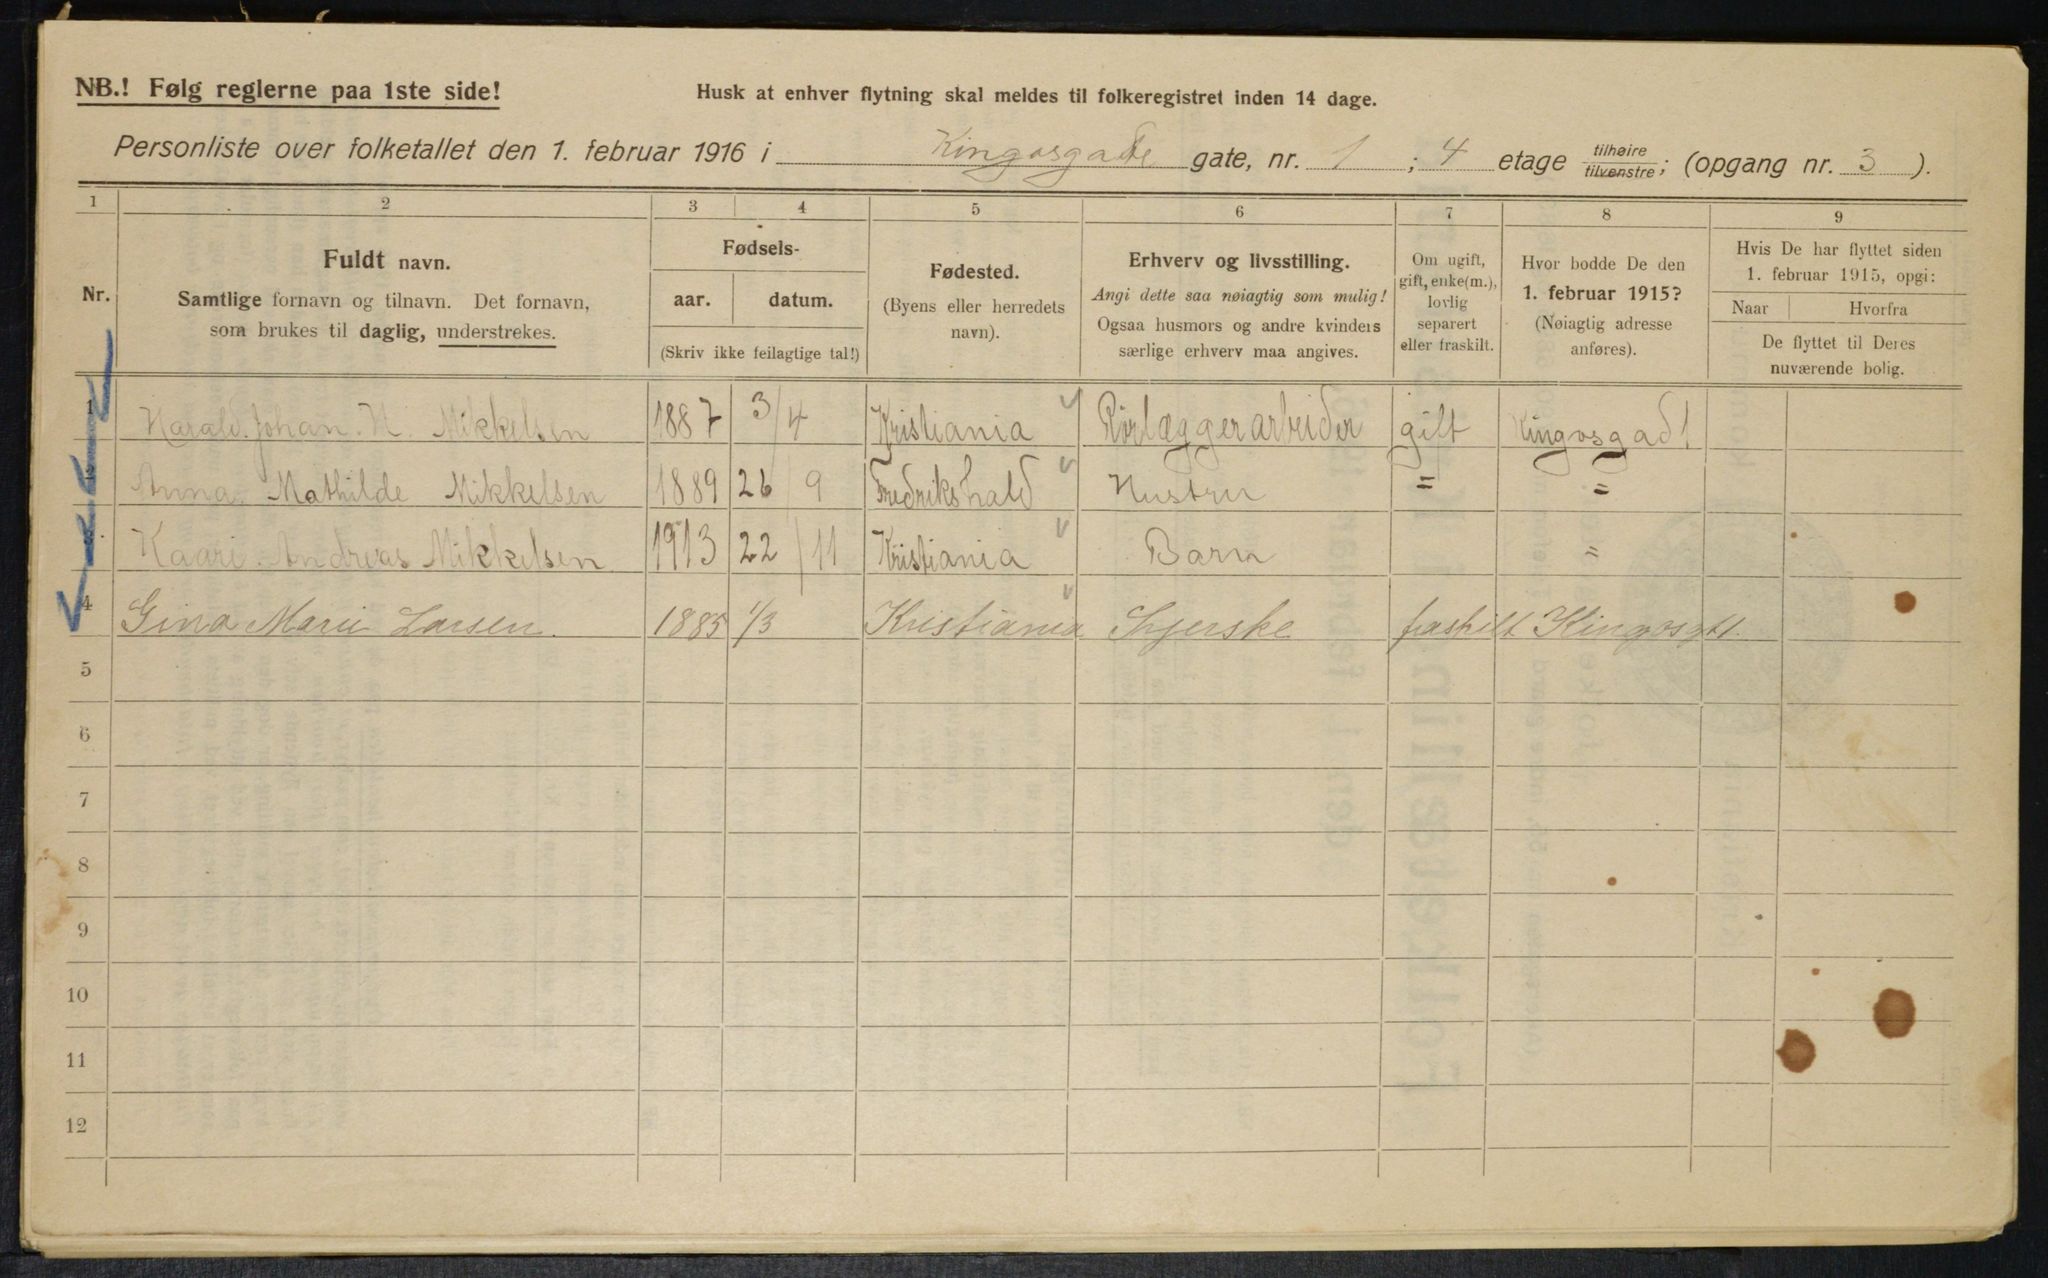 NB.! Følg reglerne paa 1ste side!
Husk at enhver flytning skal meldes til folkeregistret inden 14 dage.
Personliste over folketallet den 1. februar 1916 i Kingosgade gate, nr. 1 ; 4 etage tilhøire / tilvenstre; (opgang nr. 3 ).
1 2 3 4 5 6 7 8 9
Nr.
Fuldt navn.
Samtlige fornavn og tilnavn. Det fornavn,
som brukes til daglig, understrekes.
Fødsels-
aar. datum.
(Skriv ikke feilagtige tal!)
Fødested.
(Byens eller herredets
navn).
Erhverv og livsstilling.
Angi dette saa nøiagtig som mulig!
Ogsaa husmors og andre kvinders
særlige erhverv maa angives.
Om ugift,
gift, enke(m.),
lovlig
separert
eller fraskilt.
Hvor bodde De den
1. februar 1915?
(Nøiagtig adresse
anføres).
Hvis De har flyttet siden
1. februar 1915, opgi:
Naar Hvorfra
De flyttet til Deres
nuværende bolig.
1 Harald. Johan. N. Mikkelsen 1887 3/4 Kristiania Rörlæggerarbeider gift Kingosgad 1
2 Anna. Mathilde Mikkelsen 1889 26 9 Fredrikshald Hustru = =
3 Kaare. Andreas Mikkelsen 1913 22/11 Kristiania Barn =
4 Gina Marie Larsen. 1885 1/3 Kristiania Syerske fraskilt Kingosgt 1.
5
6
7
8
9
10
11
12